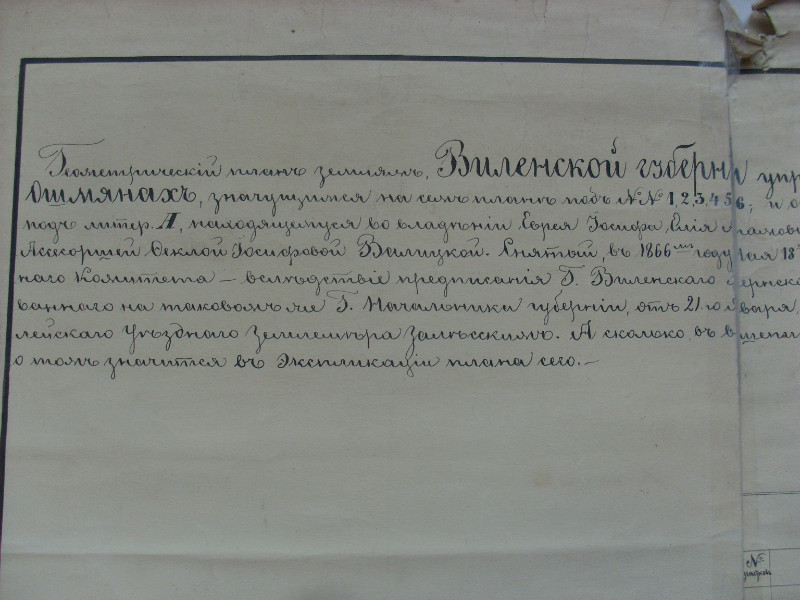 Геометрическій планъ землямъ, Виленской губерніи упр
Ошмянахъ, значущимся на семъ планѣ подъ №№ 1, 2, 3, 4, 5, 6; и о
подъ литер. А, находящемуся во владѣніи Еврея Іосифа Елія
Ассесоршей Феклой Іосифовой Валицкой. Снятый, въ 1866мъ году Мая 18
наго Комитета – вслѣдствіе предписанія Г. Виленскаго
ваннаго на таковомъ же Г. Начальника губерніи, отъ 21го
лейскаго Уѣзднаго Землемѣра Залѣсскимъ. А сколько, въ
о томъ значится въ Экспликаціи плана сего. –
№